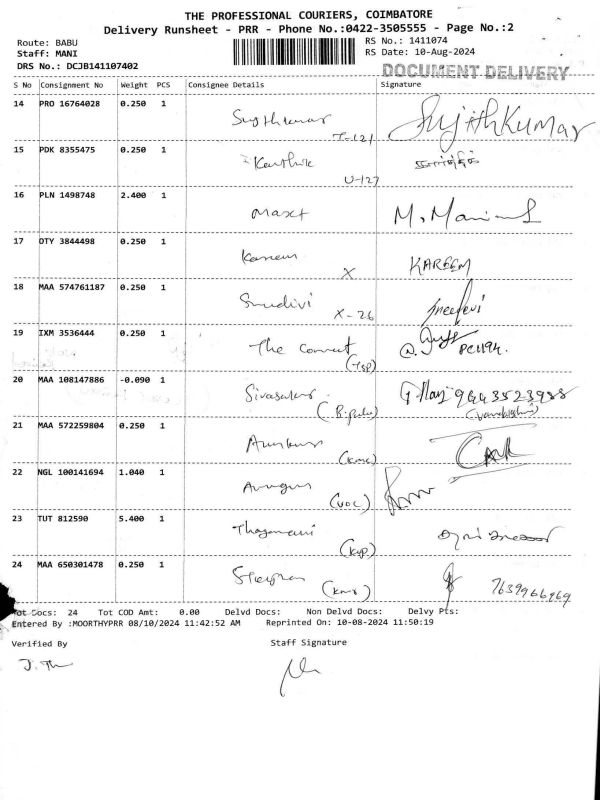 THE PROFESSIONAL COURIERS, COIMBATORE
Delivery Runsheet - PRR - Phone No.:0422-3505555 - Page No.:2
Route: BABU
Staff: MANI
DRS No.: DCJB141107402
RS No.: 1411074
RS Date: 10-Aug-2024
DOCUMENT DELIVERY
S No Consignment No Weight PCS Consignee Details Signature
14 PRO 16764028 0.250 1 Sujithkumar T-121 SujithKumar
15 PDK 8355475 0.250 1 Karthik U-127
16 PLN 1498748 2.400 1
17 OTY 3844498 0.250 1 Kareem X KAREEM
18 MAA 574761187 0.250 1 X-26
19 IXM 3536444 0.250 1 The (Tsp)
20 MAA 108147886 -0.090 1 9443523988
21 MAA 572259804 0.250 1 (kmc)
22 NGL 100141694 1.040 1 (voc)
23 TUT 812590 5.400 1 (kvp)
24 MAA 650301478 0.250 1 7639966969
Tot Docs: 24 Tot COD Amt: 0.00 Delvd Docs: Non Delvd Docs: Delvy Pts:
Entered By :MOORTHYPRR 08/10/2024 11:42:52 AM Reprinted On: 10-08-2024 11:50:19
Verified By Staff Signature